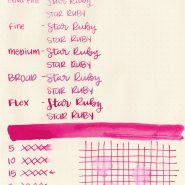 Star Ruby
STAR RUBY
fine - Star Ruby
STAR RUBY
medium - Star Ruby
STAR RUBY
BROAD - Star Ruby
STAR RUBY
FLEX - Star Ruby
STAR RUBY
5 xxxxx
10 xxxxx
15 xxxxx